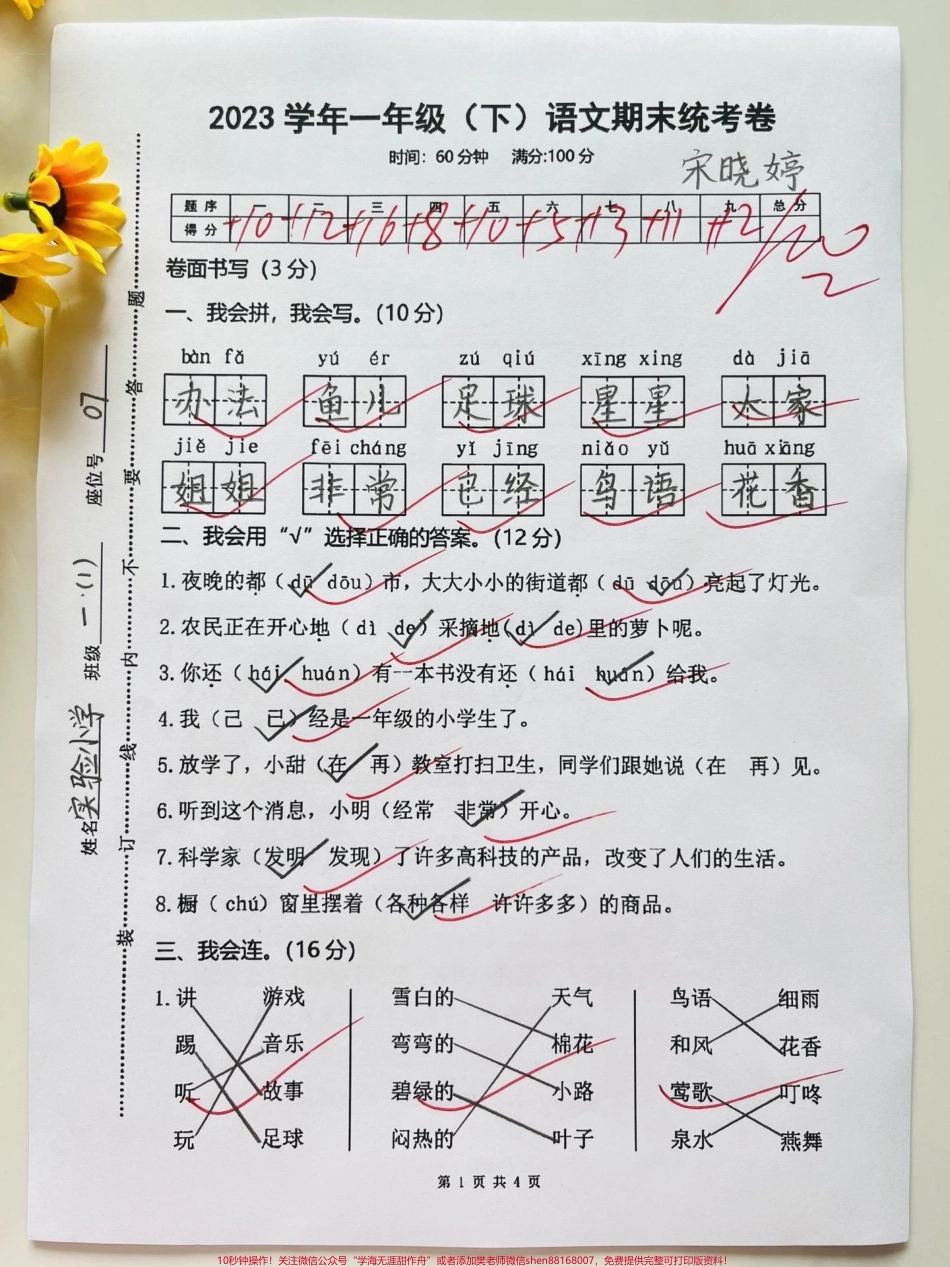 2023 学年一年级（下）语文期末统考卷
时间：60 分钟 满分:100 分
宋晓婷
题 序 一 二 三 四 五 六 七 八 九 总 分
得 分 +10 +12 +16 +8 +10 +5 +13 +11 +12 100
2
卷面书写（3 分）
一、我会拼，我会写。（10 分）
bàn fǎ yú ér zú qiú xīng xing dà jiā
办法 鱼儿 足球 星星 大家
jiě jie fēi cháng yǐ jīng niǎo yǔ huā xiāng
姐姐 非常 已经 鸟语 花香
二、我会用“√”选择正确的答案。（12 分）
1.夜晚的都（ dū√ dōu）市，大大小小的街道都（ dū dōu√）亮起了灯光。
2.农民正在开心地（ dì de√）采摘地(dì√ de)里的萝卜呢。
3.你还（ hái√ huán）有一本书没有还（ hái huán√）给我。
4.我（己 已√）经是一年级的小学生了。
5.放学了，小甜（在√ 再）教室打扫卫生，同学们跟她说（在 再）见。
6.听到这个消息，小明（经常 非常√）开心。
7.科学家（发明√ 发现）了许多高科技的产品，改变了人们的生活。
8.橱（ chú）窗里摆着（各种各样√ 许许多多）的商品。
三、我会连。（16 分）
1.讲 游戏 雪白的 天气 鸟语 细雨
踢 音乐 弯弯的 棉花 和风 花香
听 故事 碧绿的 小路 莺歌 叮咚
玩 足球 闷热的 叶子 泉水 燕舞
第 1 页 共 4 页
姓名 实验小学 班级 一.(1) 座位号 07
装 订 线 内 不 要 答 题
10秒钟操作！关注微信公众号“学海无涯甜作舟”或者添加樊老师微信shen88168007，免费提供完整可打印版资料！